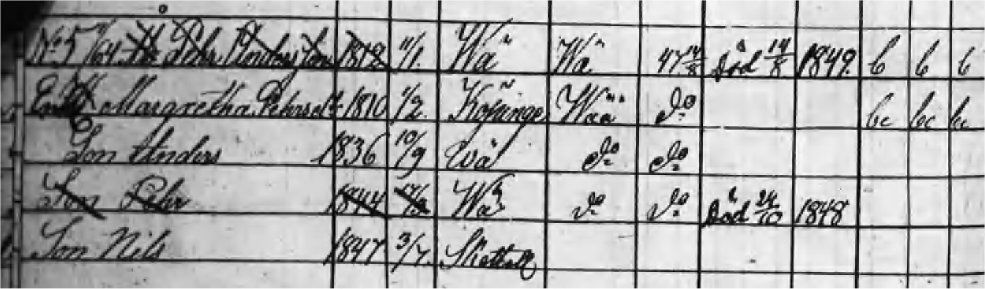 N° 5 1/64 Åb Pehr Andersson 1818 11/1 Wä Wä 47 14/8 död 14/8 1849 b b b
Enk Margretha Pehrsd:r 1810 1/2 Köpinge Wää do bc bc bc
Son Anders 1836 10/9 Wä do do
Son Pehr 1844 Wä do do död 24/10 1848
Son Nils 1847 3/7 Skättell